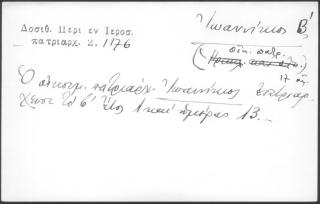 Δοσιθ. Περι εν Ιεροσ.
πατριαρχ. 2. 1176
Ἰωαννίκιος Β΄
οἰκ. πατρ.
17 αἰ.
Ὁ οἰκουμ. πατριάρχ. Ἰωαννίκιος ἐπατριάρ-
χευσε τό β΄ ἔτος 1 καί ἡμέρας 13...